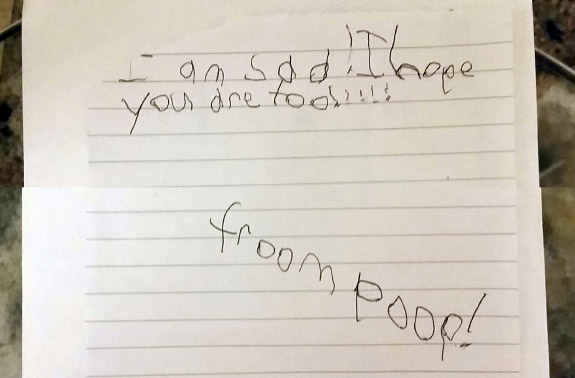 I am sad! I hope
you are too!!!!!
froom poop!